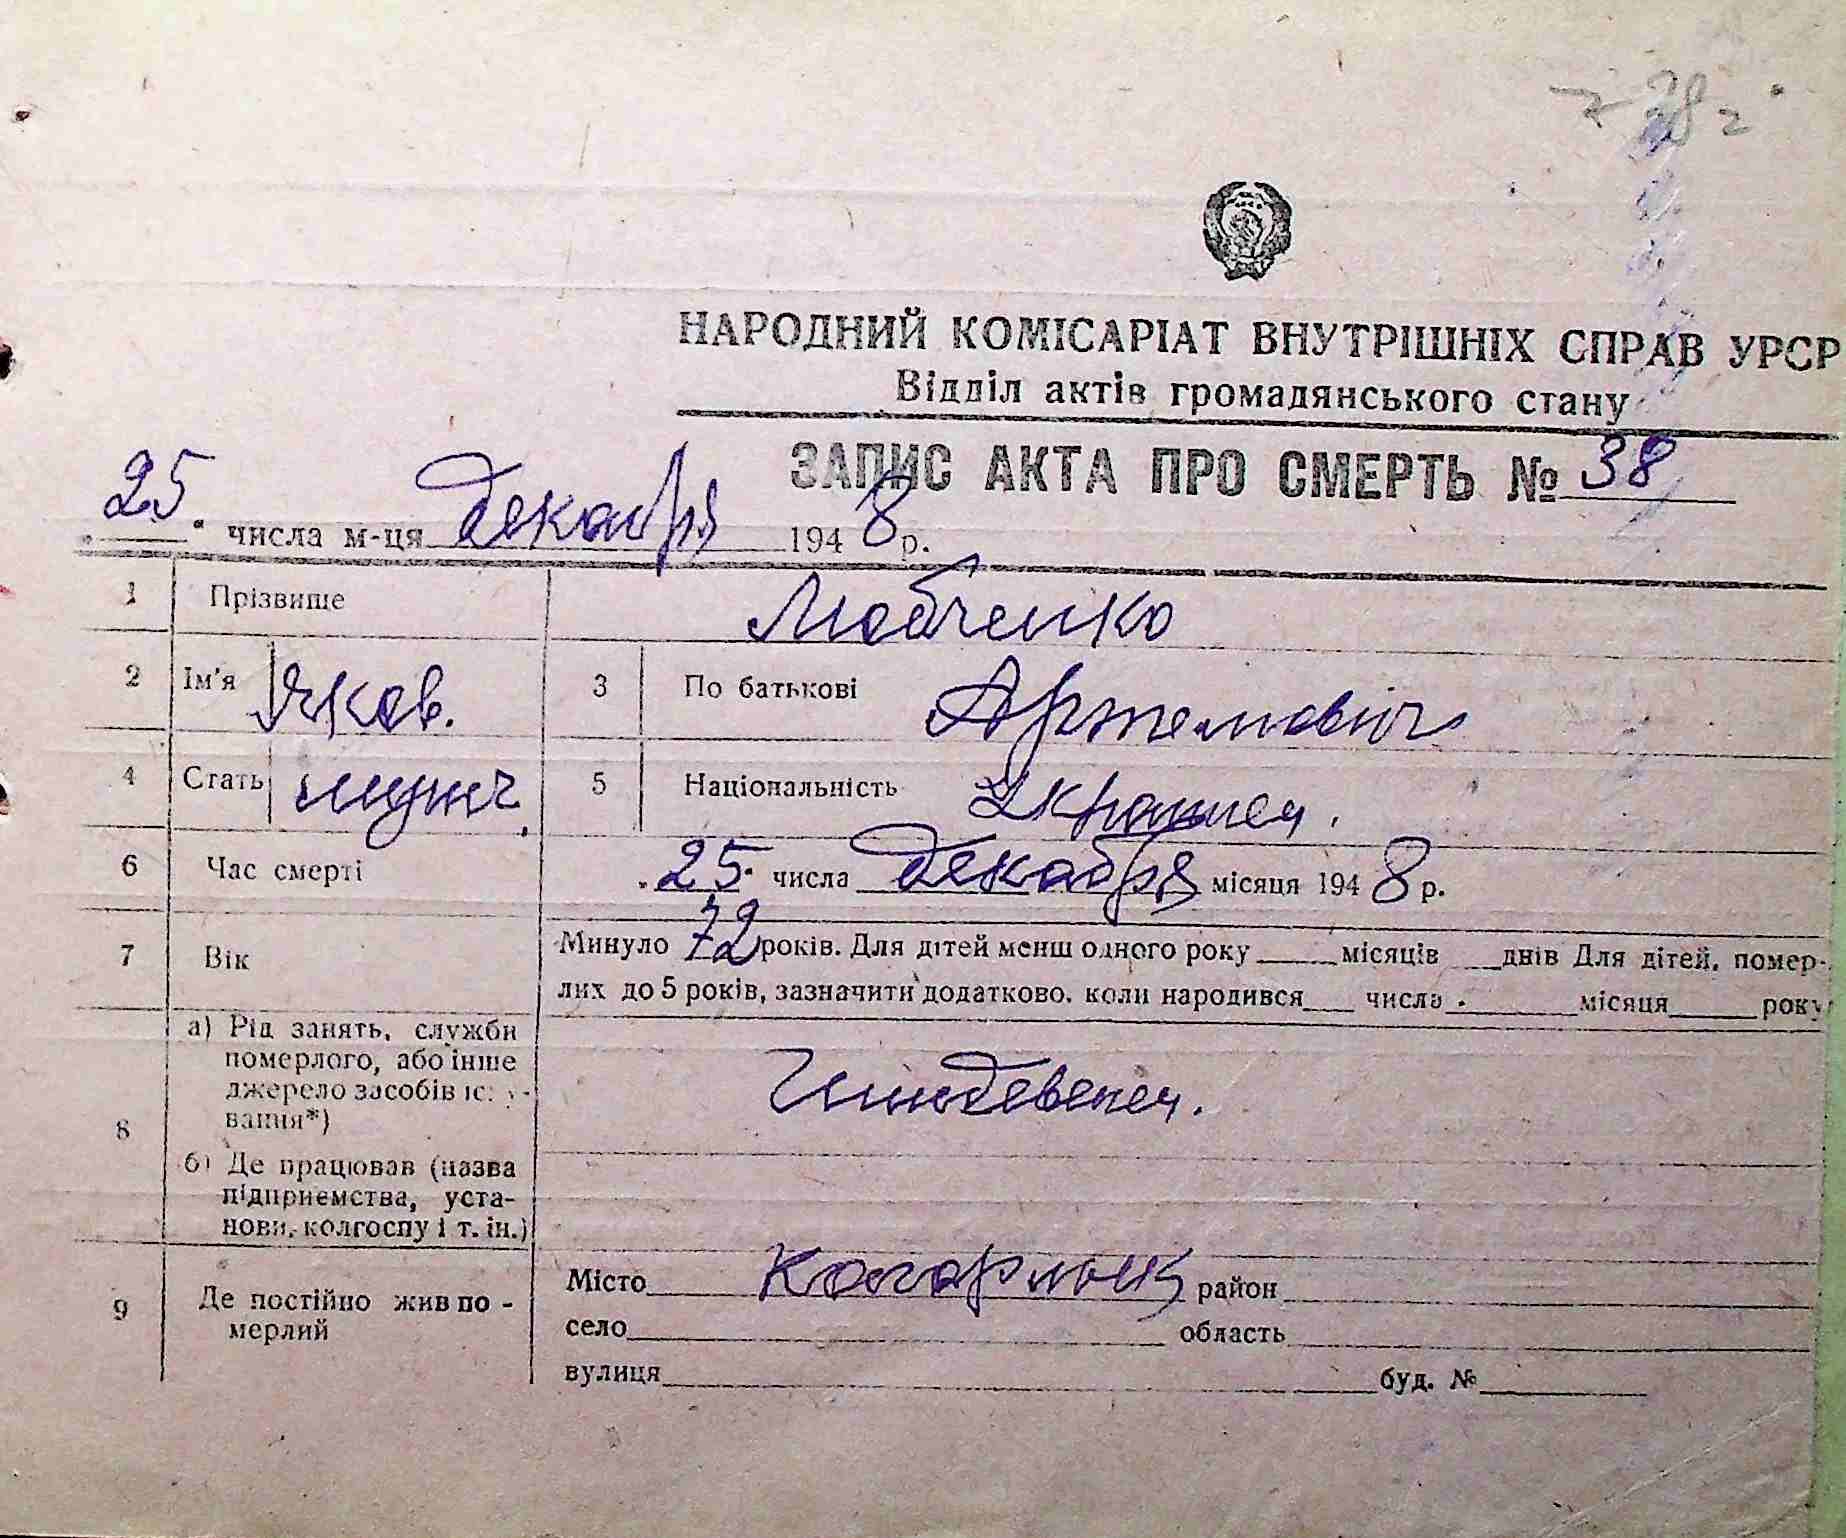 38
НАРОДНИЙ КОМІСАРІАТ ВНУТРІШНІХ СПРАВ УРСР
Відділ актів громадянського стану
ЗАПИС АКТА ПРО СМЕРТЬ № 38
"25" числа м-ця декабря 1948 р.
1 Прізвище Любченко
2 Ім'я Яков. 3 По батькові Артемович
4 Стать мужч. 5 Національність Украинец.
6 Час смерті "25" числа декабря місяця 1948 р.
7 Вік Минуло 72 років. Для дітей менш одного року ____ місяців ____ днів Для дітей, помер-
лих до 5 років, зазначити додатково, коли народився ____ числа ____ місяця ____ року
8 а) Рід занять, служби
померлого, або інше
джерело засобів існу-
вання*)
Иждевенец.
б) Де працював (назва
підприємства, уста-
нови, колгоспу і т. ін.)
9 Де постійно жив по-
мерлий
Місто Кагарлык район
село ____ область
вулиця ____ буд. №